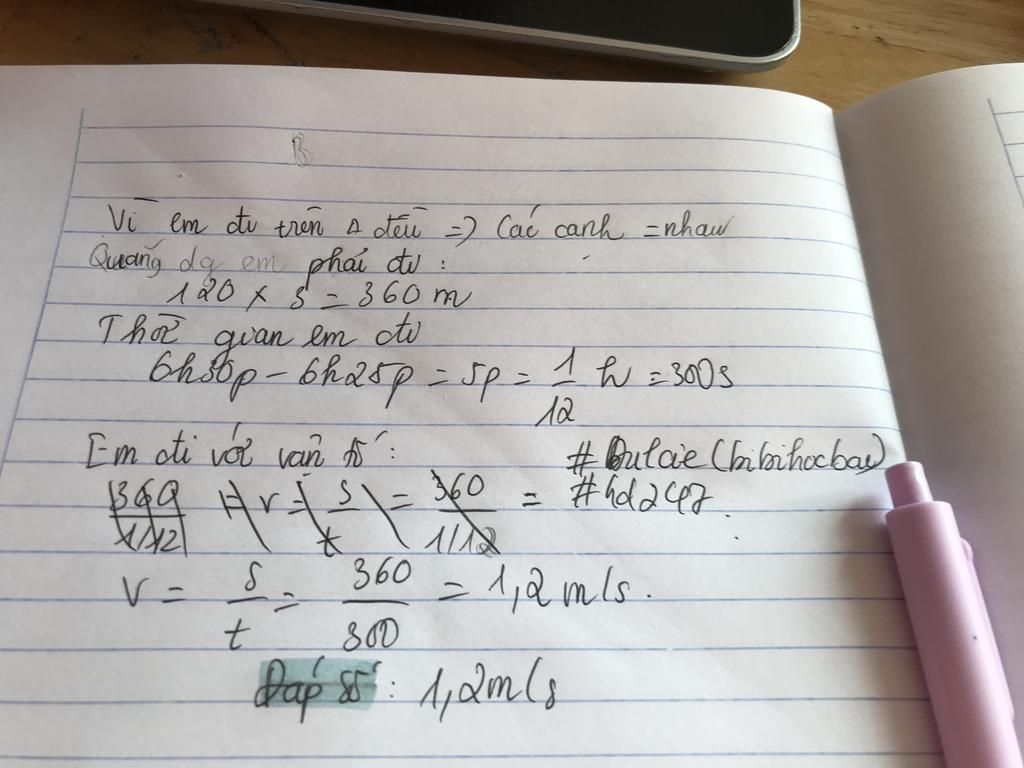 B
Vì em đi trên Δ đều => Các cạnh = nhau
Quãng dg em phải đi :
120 x 3 = 360 m
Thời gian em đi
6h30p - 6h25p = 5p = 1/12 h = 300s
Em đi với vận tố :
v = s/t = 360/1/12 =
# (bibihocbai)
#4d24g7
v = s/t = 360/300 = 1,2 m/s.
Đáp số : 1,2m/s